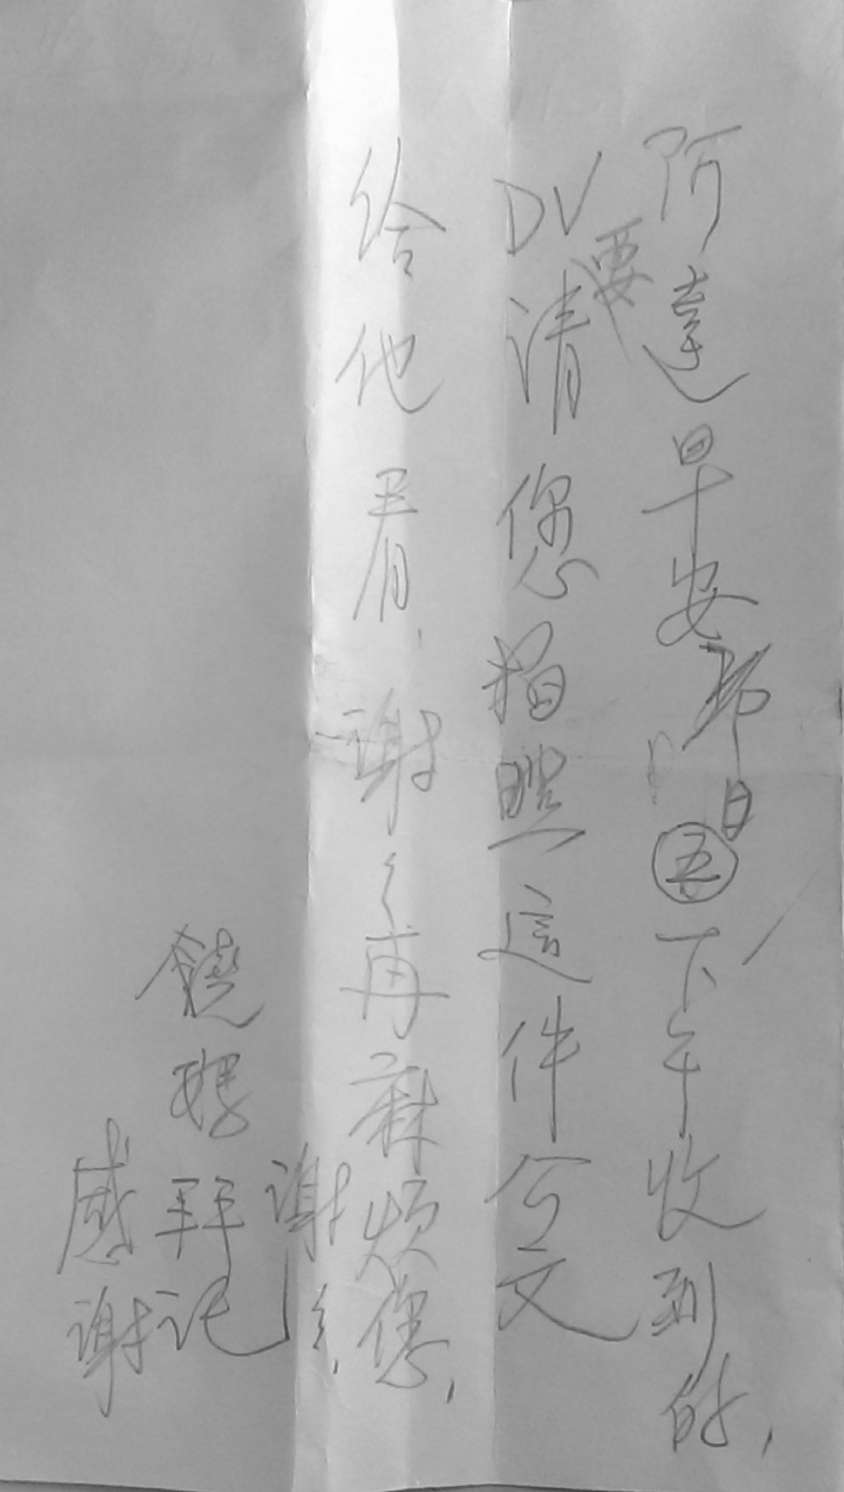 阿達早安昨日五下午收到的,
DV要請您拍照這件公文
給他看,謝々再麻煩您,
謝々,
饒 拜託
感謝